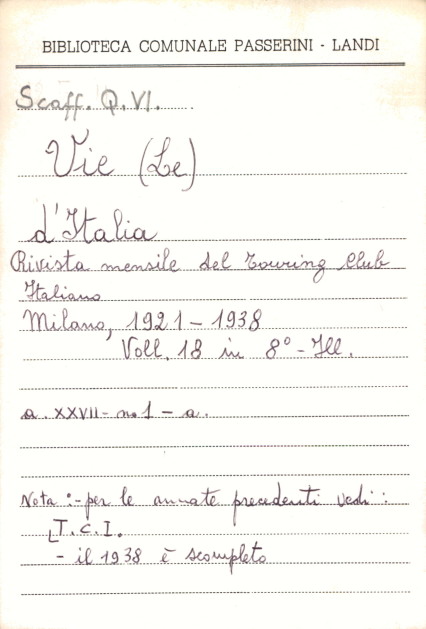 BIBLIOTECA COMUNALE PASSERINI - LANDI
Scaff. Q.VI.
Vie (Le)
d'Italia
Rivista mensile del Touring Club
Italiano
Milano, 1921 - 1938
Voll. 18 in 8° - Ill.
a. XXVII - no 1 - a.
Nota :- per le annate precedenti vedi :
[T.C.I.
- il 1938 è scompleto